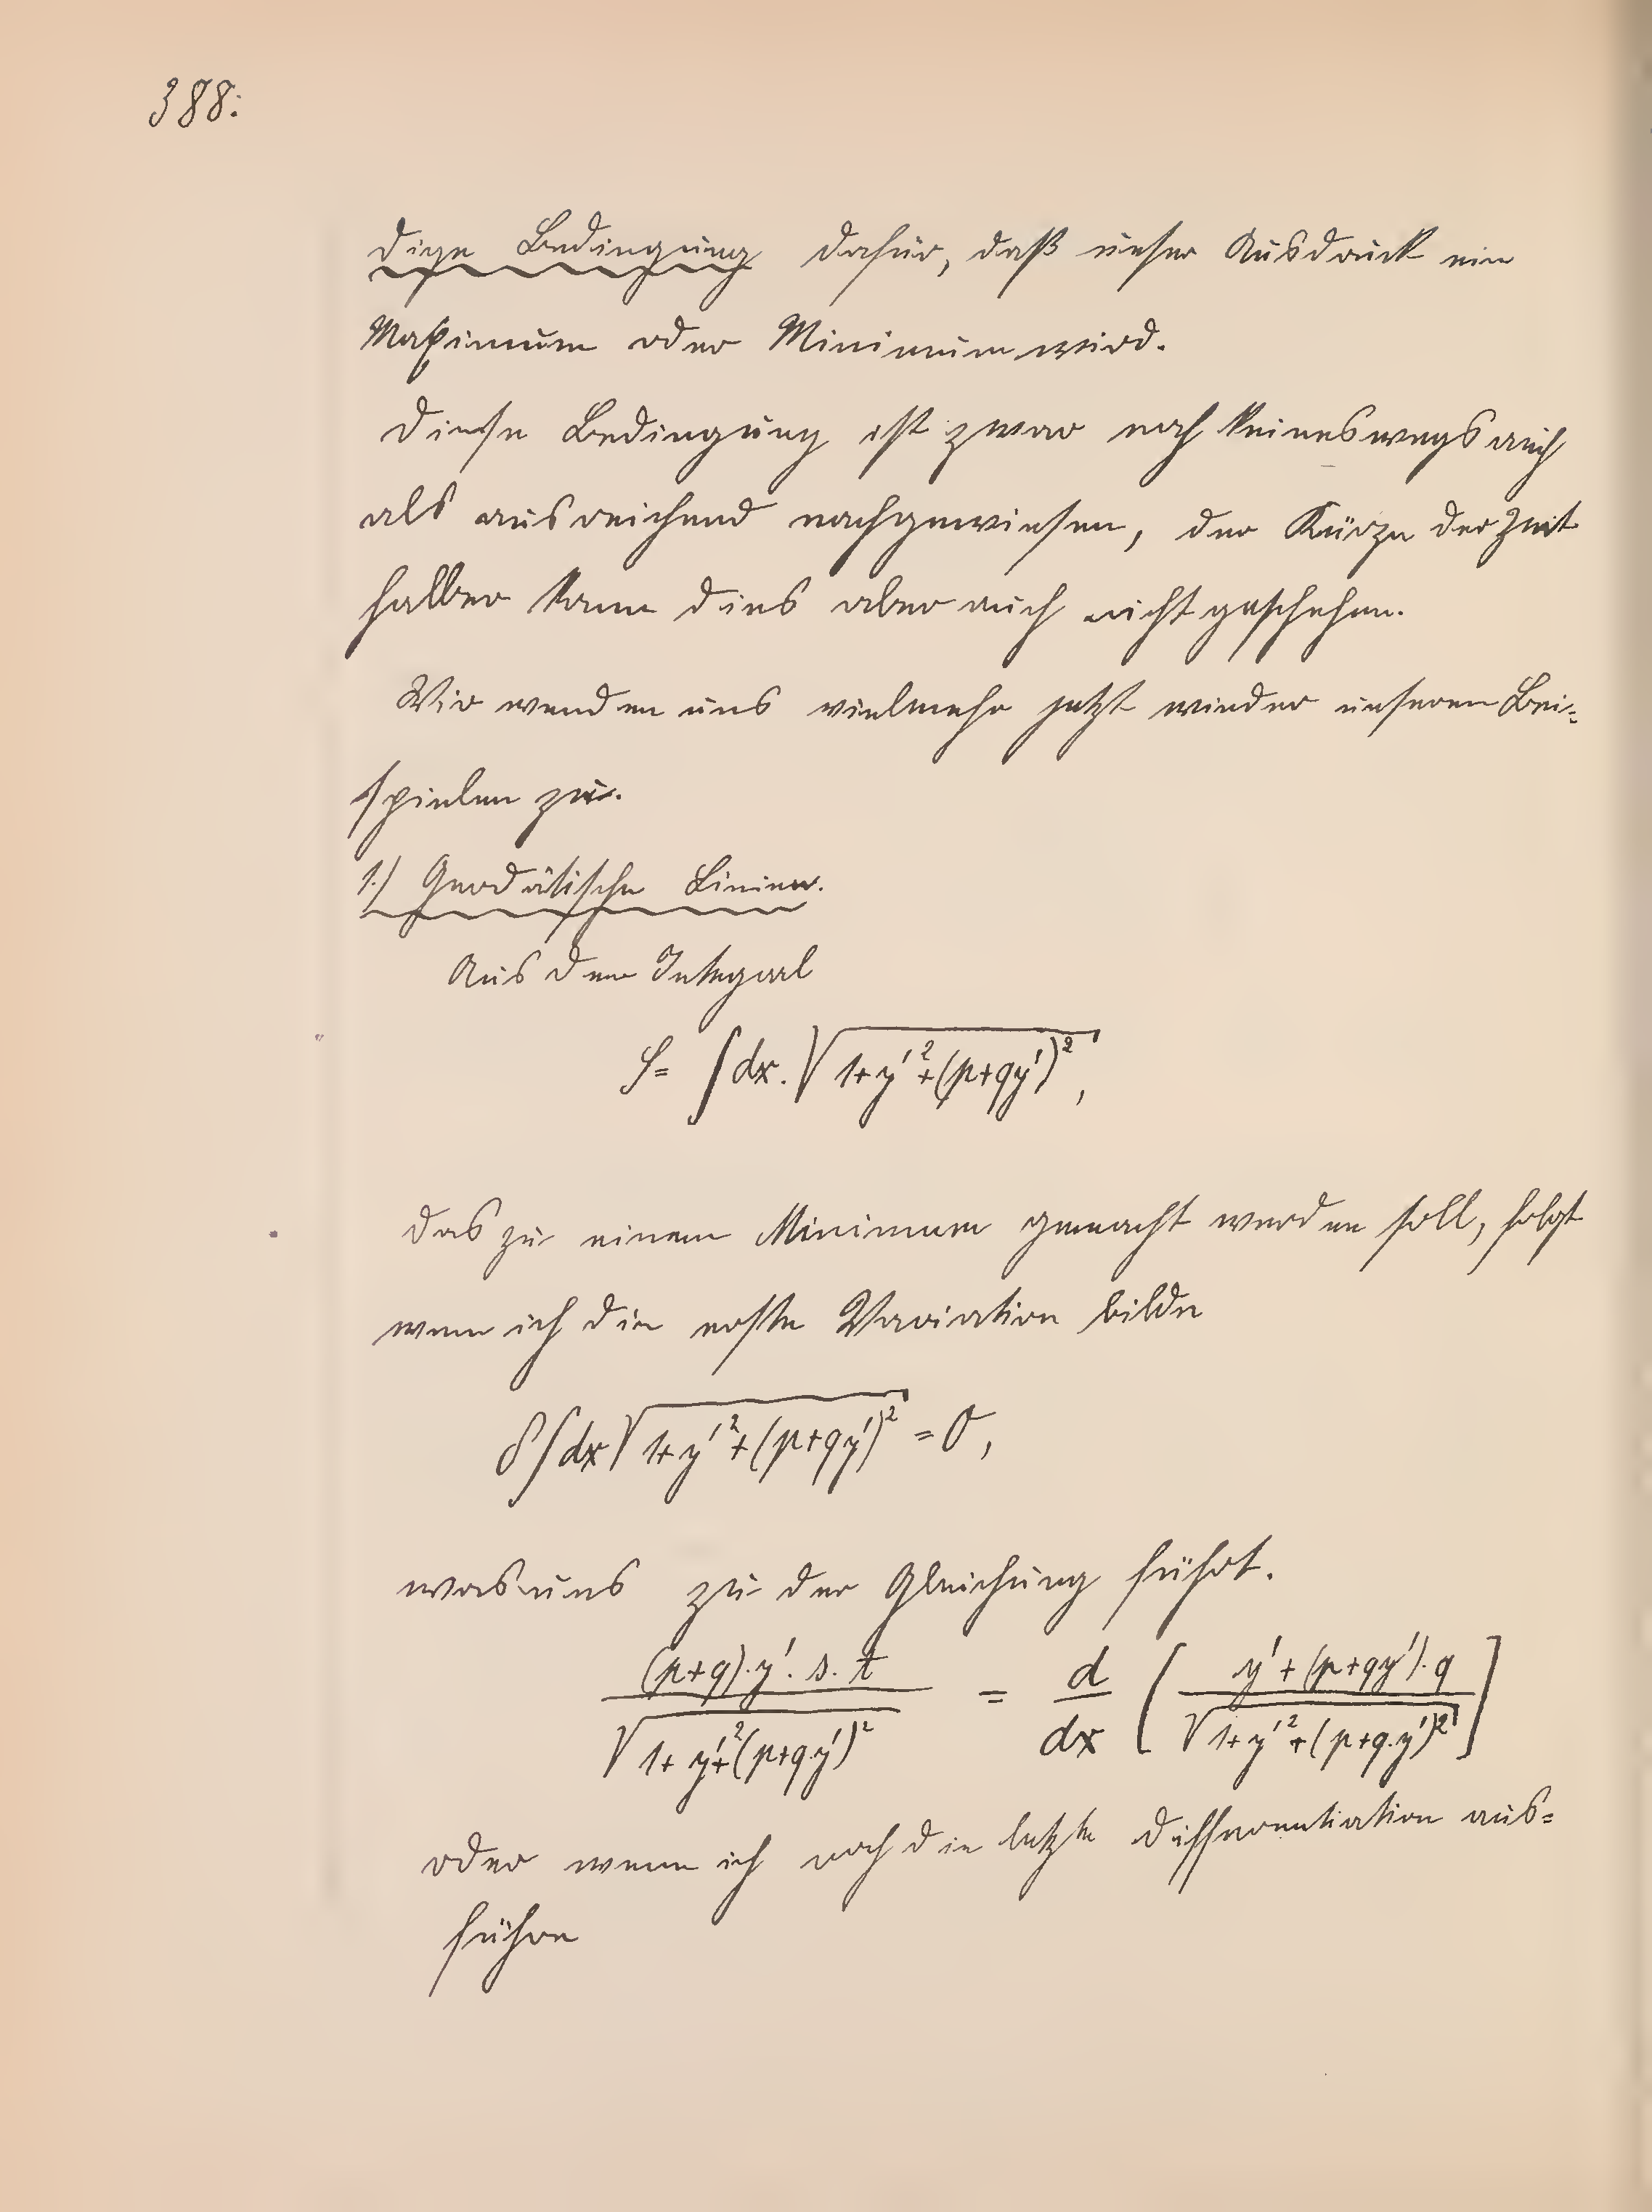 388.
dige Bedingung dafür, daß unser Ausdruck ein
Maximum oder Minimum wird.
Diese Bedingung ist zwar noch keineswegs auch
als ausreichend nachgewiesen, der Kürze der Zeit
halber kann dies aber auch nicht geschehen.
Wir wenden uns vielmehr jetzt wieder unseren Bei=
spielen zu.
1.) Geodätische Linien.
Aus dem Integral
S = ∫ dx . √(1 + y'² + (p + qy')²),
das zu einem Minimum gemacht werden soll, folgt
wenn ich die erste Variation bilde
δ ∫ dx √(1 + y'² + (p + qy')²) = 0,
was uns zu der Gleichung führt.
(p+q)·y'· s. t / √(1 + y'² + (p + q·y')²) = d/dx [ (y' + (p + qy')·q) / √(1 + y'² + (p + q·y')²) ]
oder wenn ich noch die letzte Differentiation aus=
führe